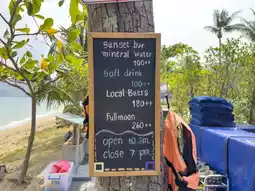 Sunset bar
mineral water
100++
Soft drink
100++
Local Beers
180++
Fullmoon
260++
open 10 am.
close 7 pm.